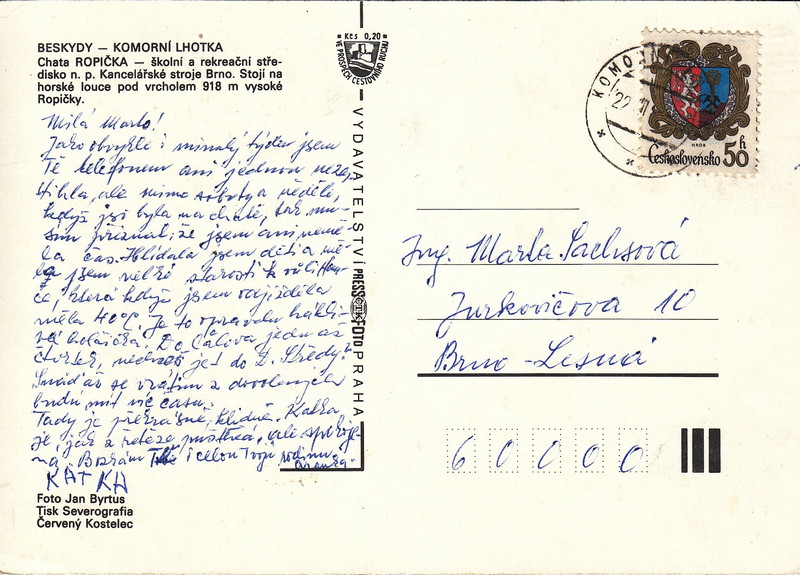 BESKYDY — KOMORNÍ LHOTKA
Chata ROPIČKA — školní a rekreační stře-
disko n. p. Kancelářské stroje Brno. Stojí na
horské louce pod vrcholem 918 m vysoké
Ropičky.
Milá Marto!
Jako obvykle i minulý týden jsem
Tě telefonem ani jednou neza-
stihla, ale mimo soboty a neděle,
kdyžs jsi byla na chatě, tak mu-
sím přiznat, že jsem ani nemě-
la čas. Hlídala jsem děti a mě-
la jsem velké starosti k vůli
če, která když jsem odjížděla
měla 40°C. Je to opravdu
holčička. Do
čtvrtek, je do D. Středy.
Snad až se vrátím z dovolených
budu mít víc času.
Tady je překrásně, klidně. Katka
je jak z řetěze puštěná, ale spokoje-
ná. Tě i celou Tvoji rodinu
KATKA
Foto Jan Byrtus
Tisk Severografia
Červený Kostelec
Kčs 0,20
VE PROSPĚCH CESTOVNÍHO RUCHU
VYDAVATELSTVÍ PRESSFOTO PRAHA
KOMORN
22
HROB
Československo 50 h
Ing. Marta Sachsová
Jurkovičova 10
Brno - Lesná
6 0 0 0 0